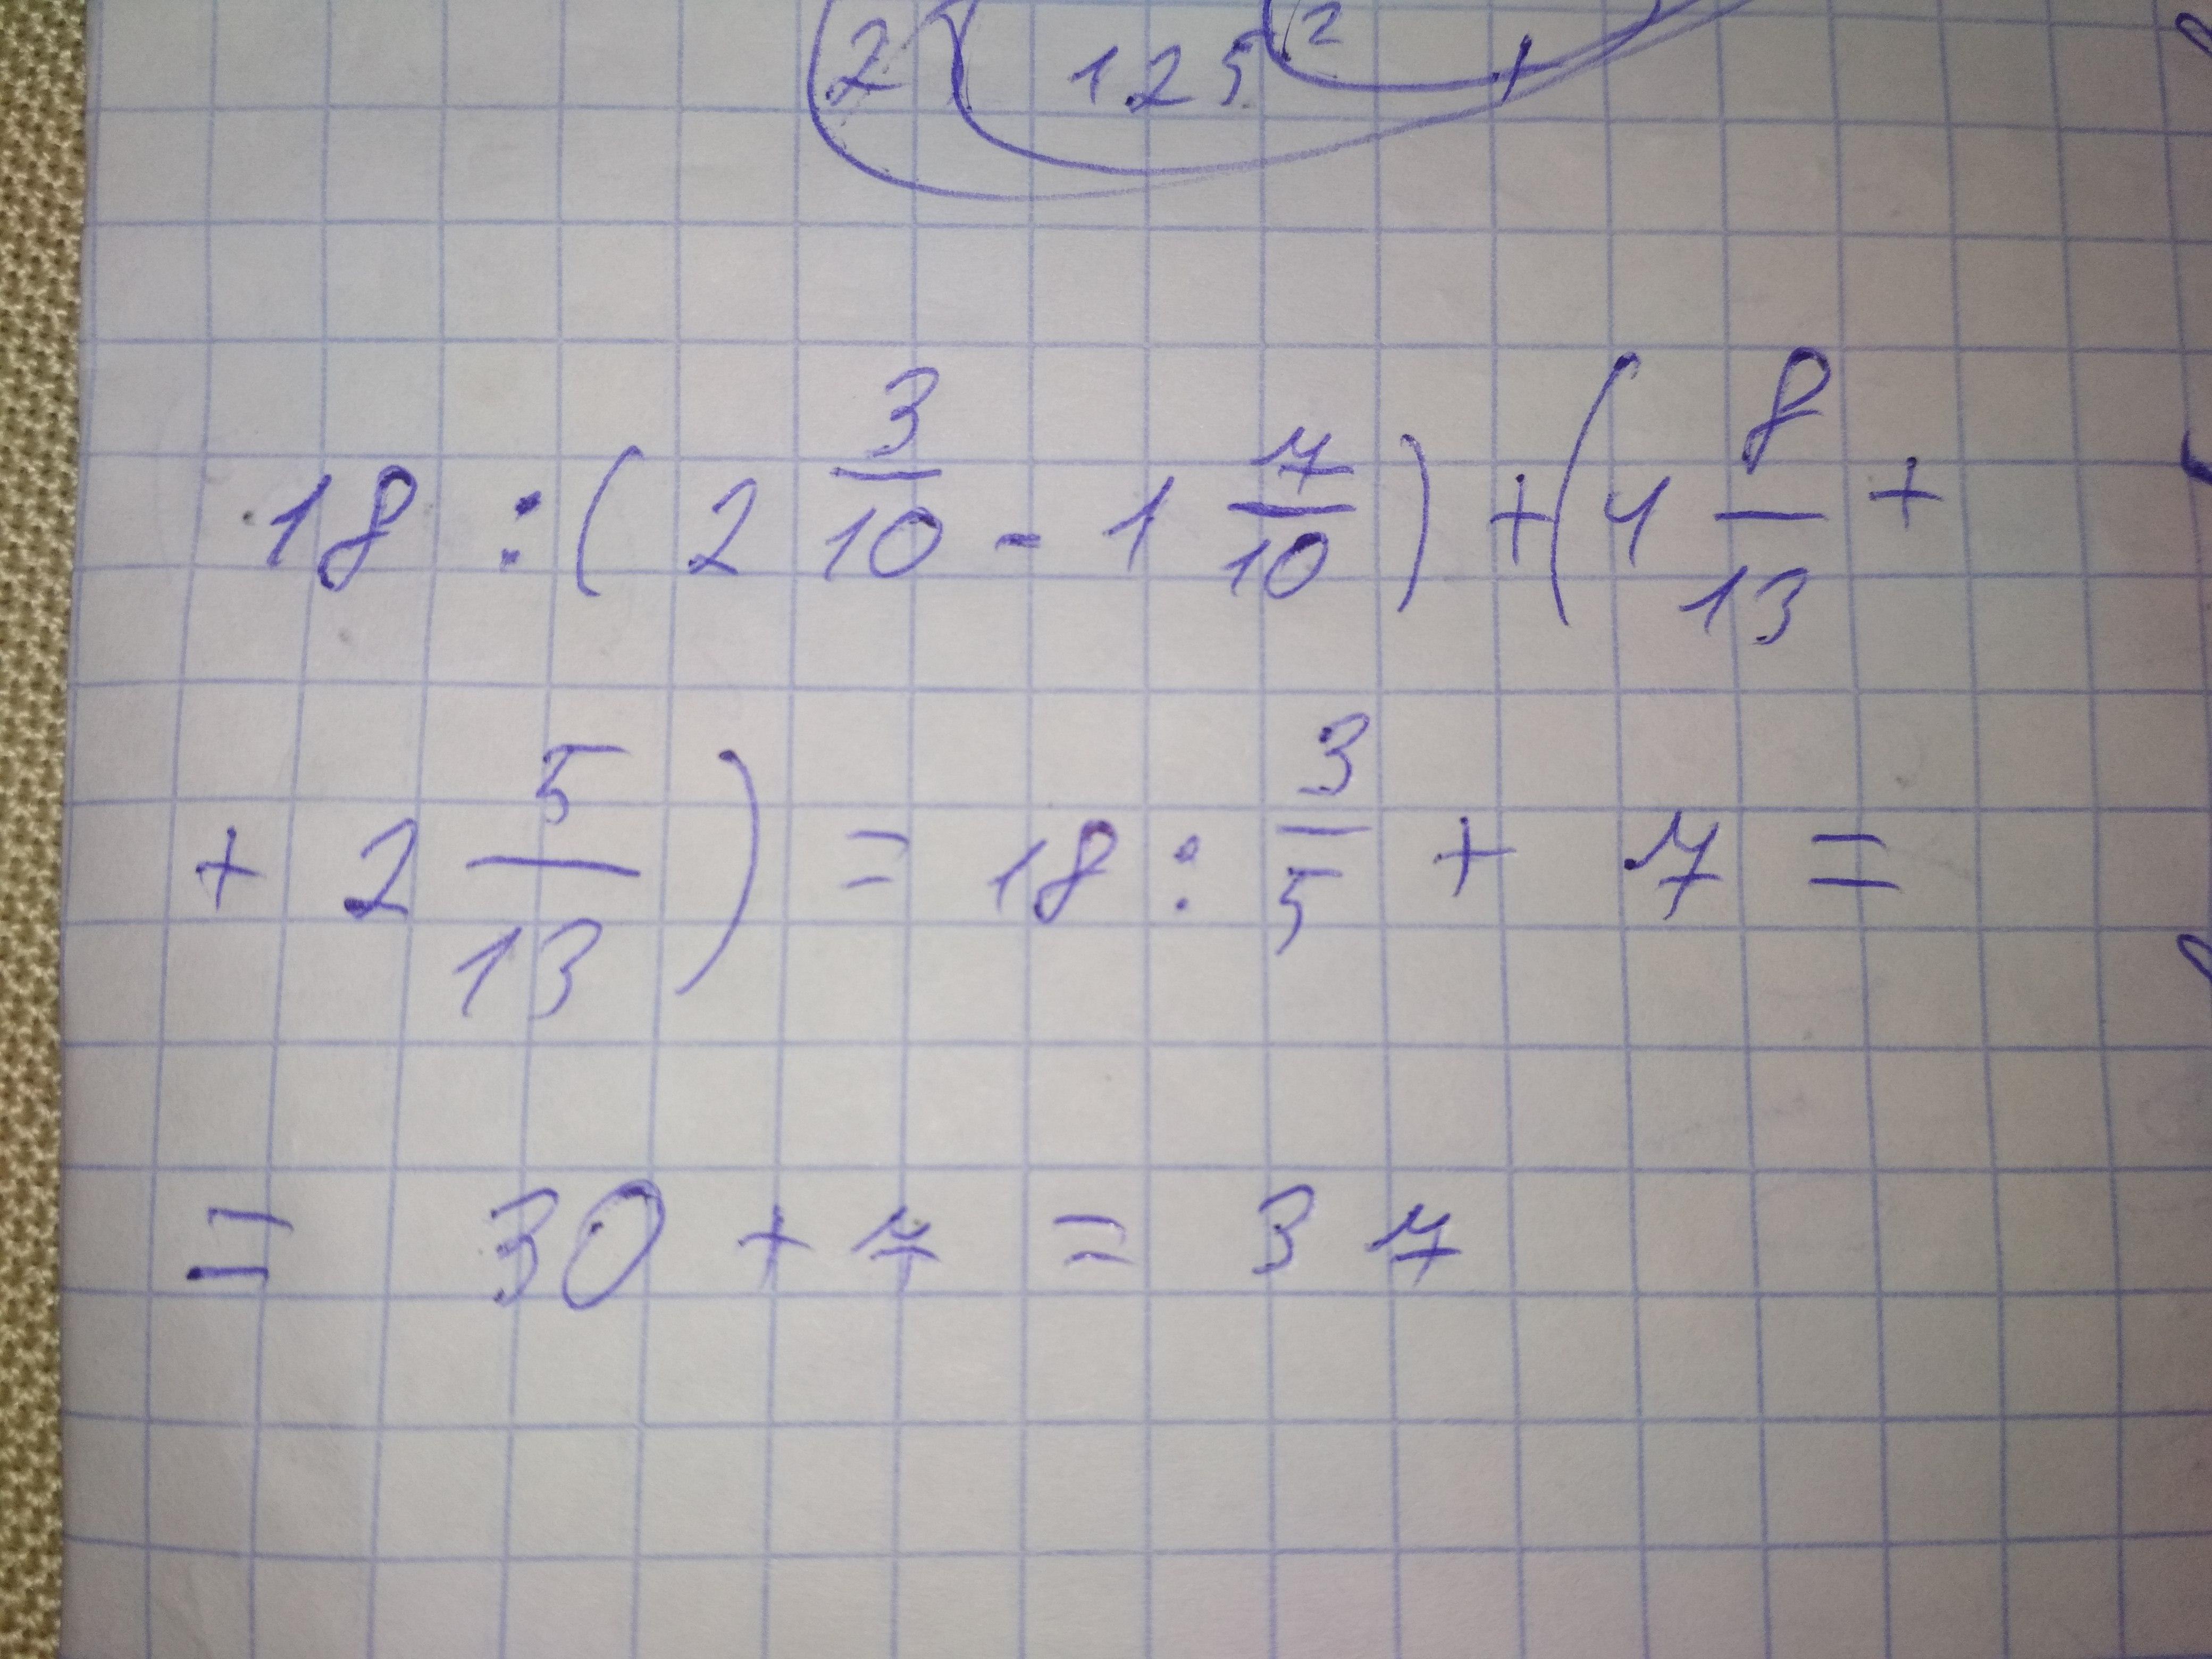 2 125 2
18 : ( 2 3/10 - 1 7/10 ) + ( 4 8/13 +
+ 2 5/13 ) = 18 : 3/5 + 7 =
= 30 + 7 = 37